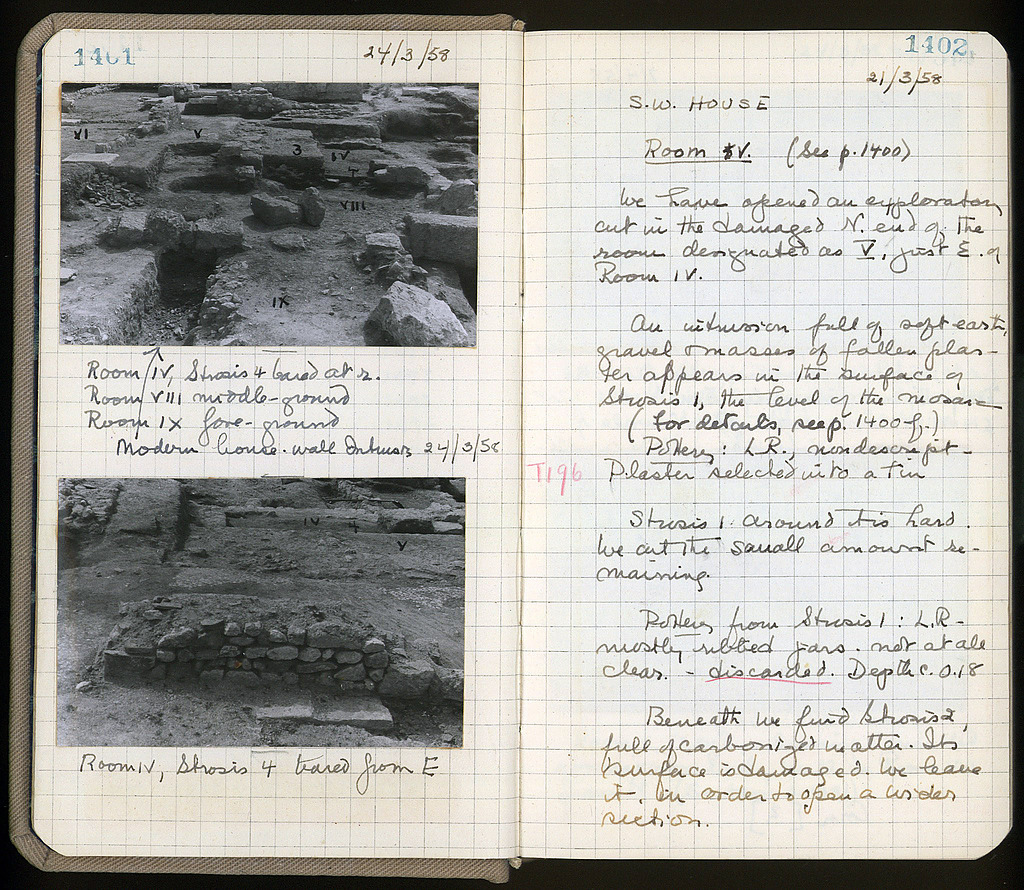 1401
24/3/58
VI
V
3
IV
4
VIII
IX
Room IV, Strosis 4 bared at r.
Room VIII middle-ground
Room IX fore-ground
Modern house-wall 24/3/58
IV
4
V
Room IV, Strosis 4 bared from E
1402
21/3/58
S.W. HOUSE
Room V. (See p. 1400)
We have opened an exploratory
cut in the damaged N. end of the
room designated as V, just E. of
Room IV.
An intrusion full of soft earth,
gravel & masses of fallen plas-
ter appears in the surface of
Strosis 1, the level of the mosaic
(for details, see p. 1400 f.)
Pottery: L.R., nondescript-
T196
Plaster selected into a tin
Strosis 1 around it is hard.
We cut the small amount re-
maining.
Pottery from Strosis 1: L.R-
mostly ribbed jars. not at all
clear. - discarded. Depth c. 0.18
Beneath we find Strosis 2,
full of carbonized matter. Its
surface is damaged. We leave
it, in order to open a wider
section.